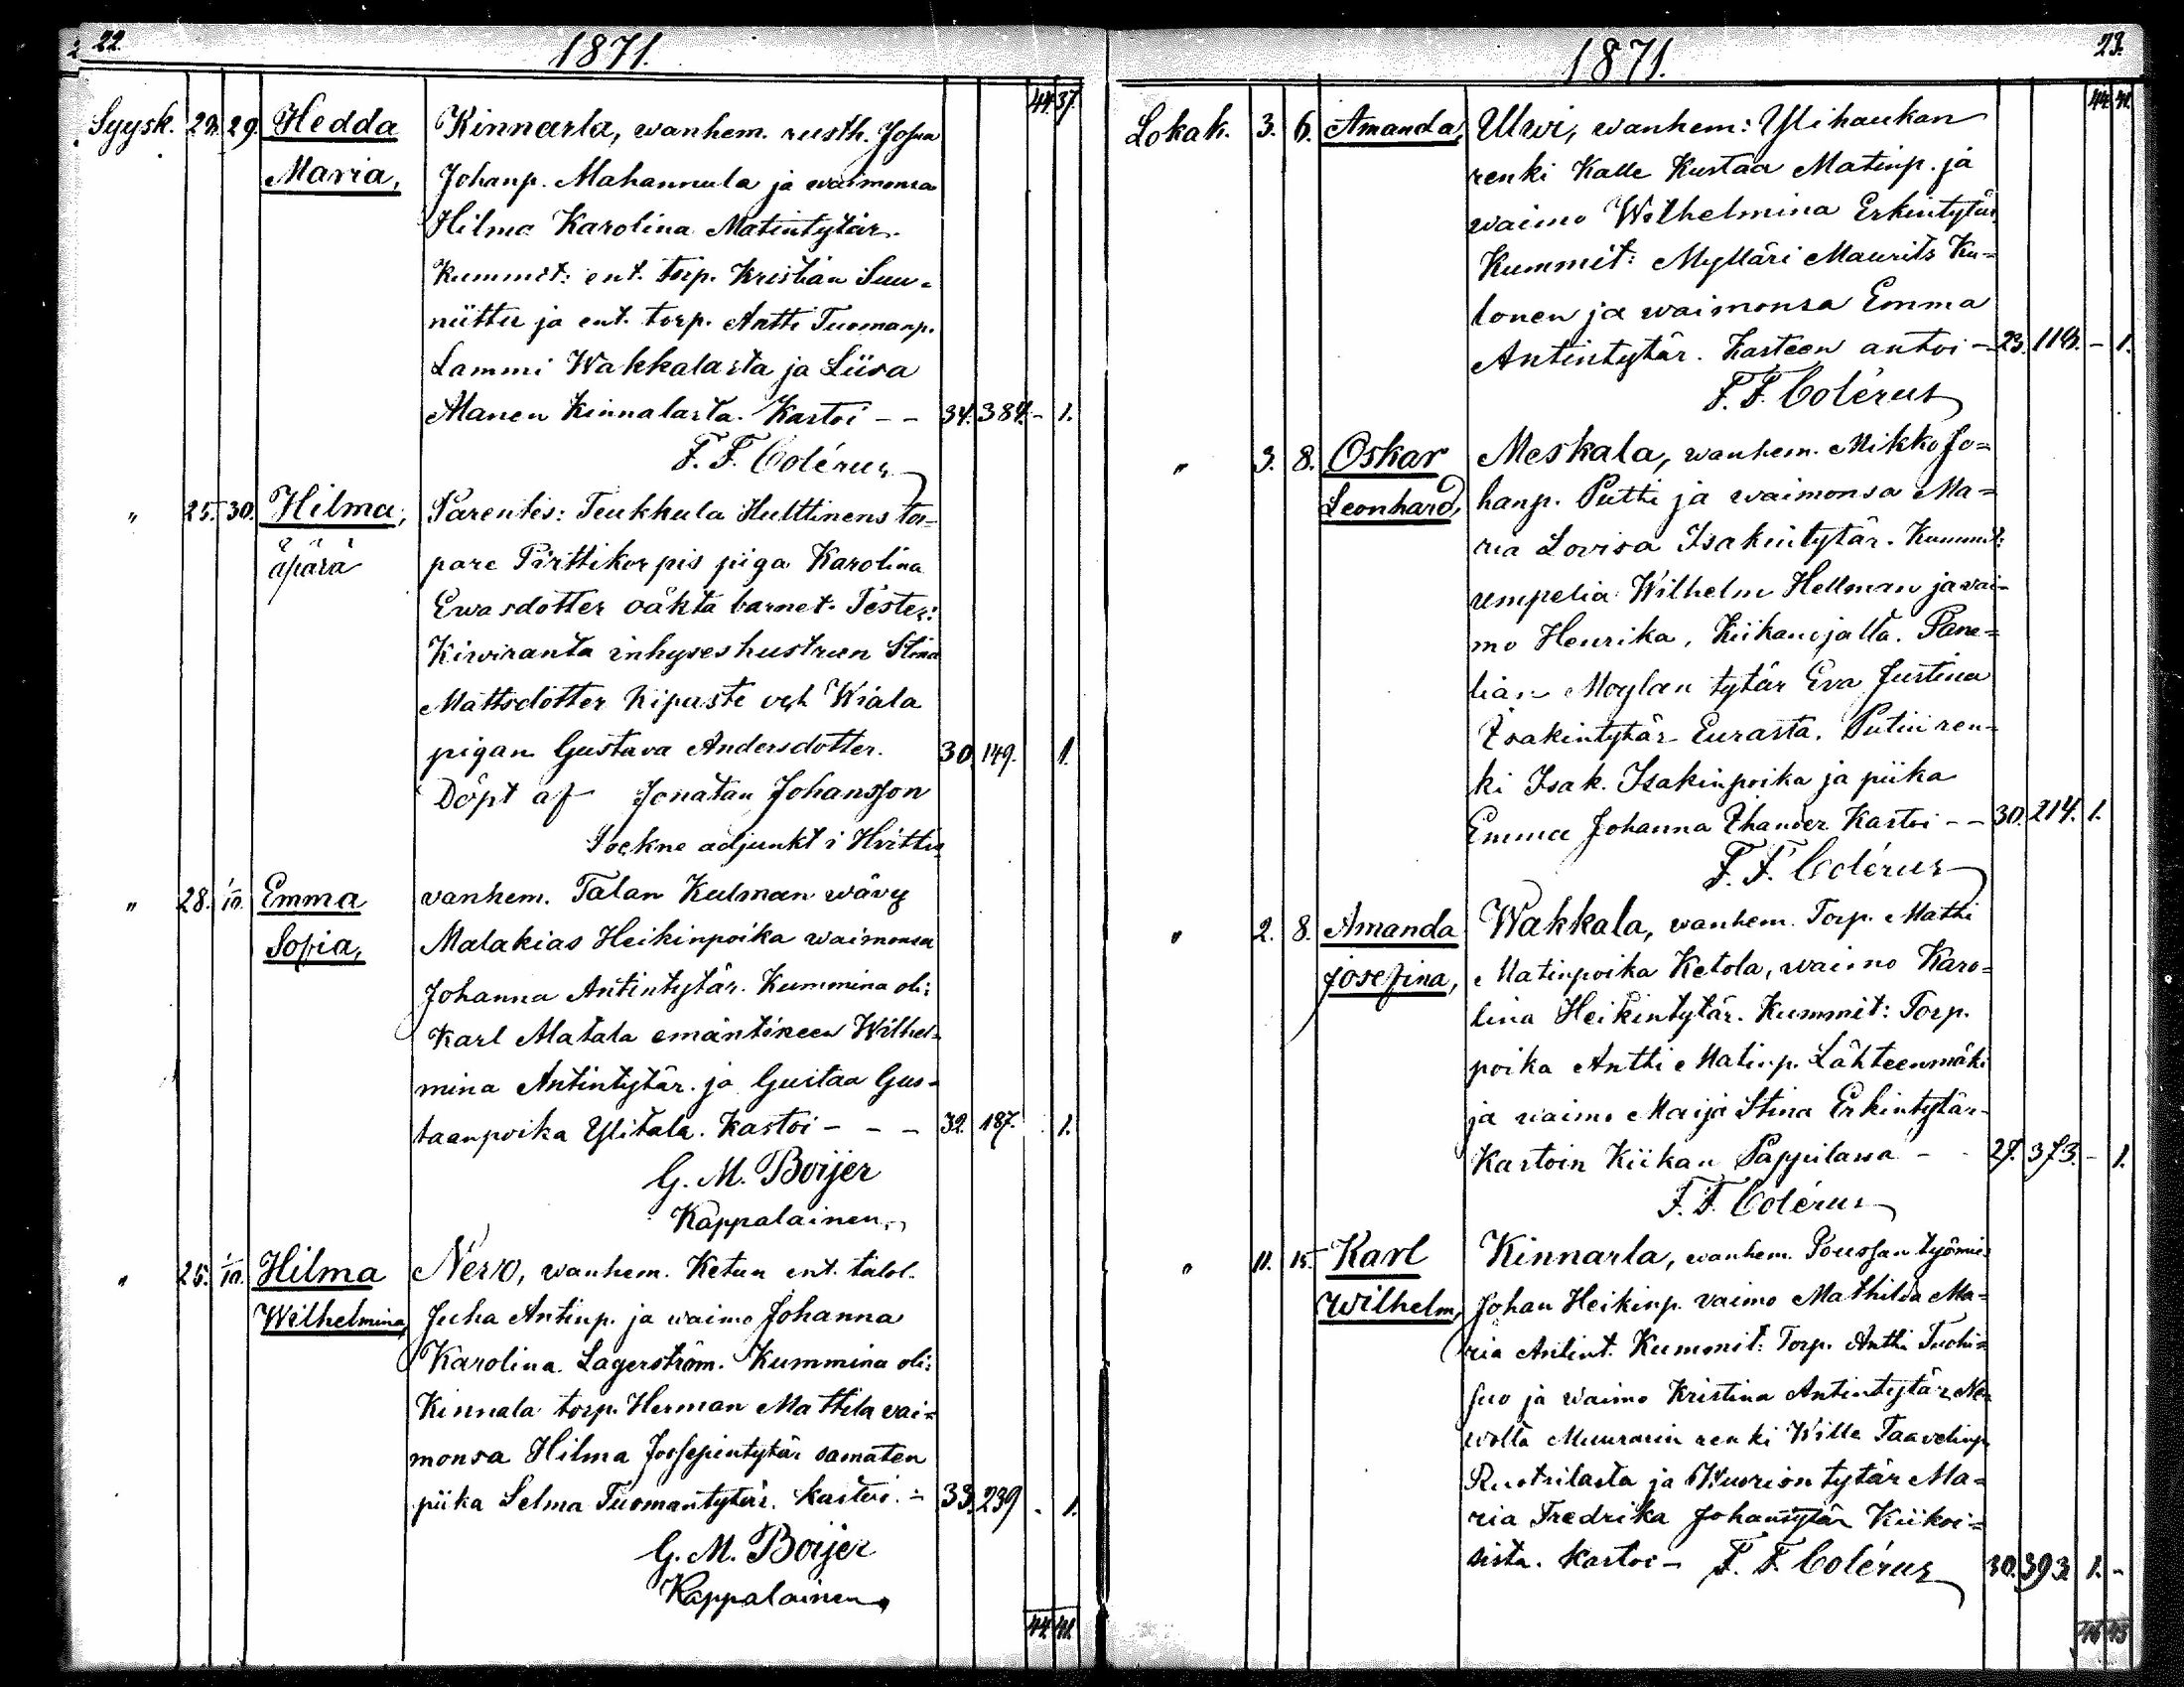 22.
1871.
44. 37.
Syysk. 29. Hedda Kinnarla, wanhem. rusth. Josua
Maria, Johanp. Mahannula ja waimonsa
Hilma Karolina Matintytär.
Kummit: ent. torp. Kristian Suu-
niittu ja ent. torp. Antti Tuomanp.
Lammi Wakkalasta ja Liisa
Manen Kinnalasta. Kastoi - - 34. 384. - 1.
F. F. Colérus
" 25. 30. Hilma, Parentes: Teukkula Hulttinens tor-
äpärä pare Pirttikorpis piga Karolina
Ewasdotter oäkta barnet. Testes:
Kiwiranta inhyseshustrun Stina
Mattsdotter Kipuste och Wiala
pigan Gustava Andersdotter. 30. 149. 1.
Döpt af Jonatan Johansson
Sockne adjunkt i Hvittis
" 28. 1/10. Emma vanhem. Talan Kulman wävy
Sofia, Malakias Heikinpoika waimonsa
Johanna Antintytär. Kummina oli:
Karl Matala emäntineen Wilhel-
mina Antintytär. ja Gustaa Gus-
taanpoika Ylitalo. Kastoi - - - 32. 187. 1.
G. M. Boijer
Kappalainen.
" 25. 1/10. Hilma Nervo, wanhem. Ketun ent. talol.
Wilhelmina, Juha Antinp. ja waimo Johanna
Karolina Lagerström. Kummina oli:
Kinnala torp. Herman Mattila vai-
monsa Hilma Joosepintytär samaten
piika Selma Tuomantytär. Kastoi. - 33. 239 - 1.
G. M. Boijer
Kappalainen
44. 41.
1871.
23.
44. 41.
Lokak. 3. 6. Amanda, Ulwi, wanhem: Ylihaukan
renki Kalle Kustaa Matinp. ja
waimo Wilhelmina Erkintytär.
Kummit: Mylläri Maurits Ku-
lonen ja waimonsa Emma
Antintytär. Kasteen antoi - 23. - 1.
F. F. Colérus
" 3. 8. Oskar Meskala, wanhem. Mikko Jo-
Leonhard, hanp. Putti ja waimonsa Ma-
ria Lovisa Isakintytär. Kummit:
umpelia Wilhelm Hellman ja wai-
mo Henrika, Kiikanojalta. Pane-
lian Moylan tytär Eva Justina
Isakintytär Eurasta. Putin ren-
ki Isak. Isakinpoika ja piika
Emma Johanna Thander Kastoi - - 30. 214. 1.
F. F. Colérus
" 2. 8. Amanda Wakkala, wanhem. Torp. Matti
Josefina, Matinpoika Ketola, waimo Karo-
lina Heikintytär. Kummit: Torp.
poika Antti Matinp. Lähteenmäki
ja waimo Maija Stina Erkintytär
Kastoin Kiikan Pappilassa - 27. 373. - 1.
F. F. Colérus
" 11. 15. Karl Kinnarla, wanhem. Poussan työmies
Wilhelm, Johan Heikinp. vaimo Mathilda Ma-
ria Antint. Kummit: Torp. Antti Tuohi-
suo ja waimo Kristina Antintytär Ner-
wolta Muurarin renki Wille Taavelinp.
Ruotsilasta ja Wuorion tytär Ma-
ria Fredrika Johantytär Kiikoi-
sista. Kastoi - F. F. Colérus 30. 393 1. -